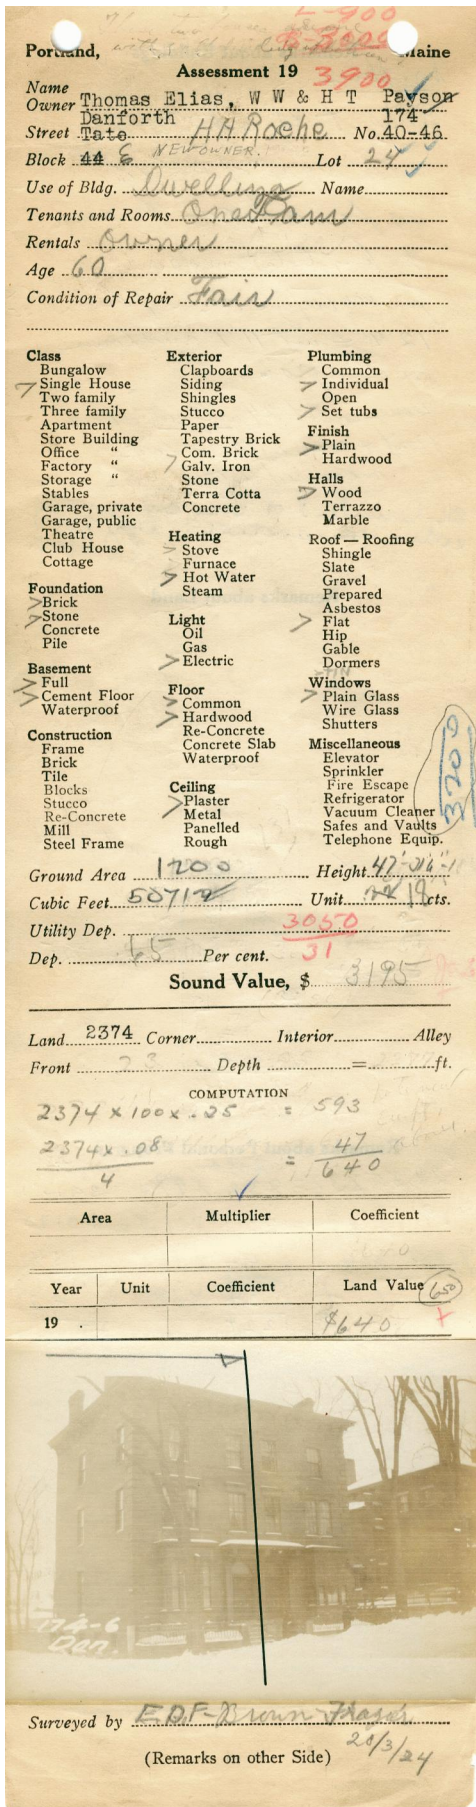 L-900
B-3000
Portland, Maine
Assessment 19 3900
Name
Owner Thomas Elias, W W & H T Payson
Danforth 174
Street Tate H H Roche No. 40-46
Block 44 E NEW OWNER. Lot 24
Use of Bldg. Dwelling Name
Tenants and Rooms One Fam
Rentals Owner
Age 60
Condition of Repair Fair
Class
Bungalow
Single House
Two family
Three family
Apartment
Store Building
Office "
Factory "
Storage "
Stables
Garage, private
Garage, public
Theatre
Club House
Cottage
Foundation
Brick
Stone
Concrete
Pile
Basement
Full
Cement Floor
Waterproof
Construction
Frame
Brick
Tile
Blocks
Stucco
Re-Concrete
Mill
Steel Frame
Exterior
Clapboards
Siding
Shingles
Stucco
Paper
Tapestry Brick
Com. Brick
Galv. Iron
Stone
Terra Cotta
Concrete
Heating
Stove
Furnace
Hot Water
Steam
Light
Oil
Gas
Electric
Floor
Common
Hardwood
Re-Concrete
Concrete Slab
Waterproof
Ceiling
Plaster
Metal
Panelled
Rough
Plumbing
Common
Individual
Open
Set tubs
Finish
Plain
Hardwood
Halls
Wood
Terrazzo
Marble
Roof — Roofing
Shingle
Slate
Gravel
Prepared
Asbestos
Flat
Hip
Gable
Dormers
TIN
Windows
Plain Glass
Wire Glass
Shutters
Miscellaneous
Elevator
Sprinkler
Fire Escape
Refrigerator
Vacuum Cleaner
Safes and Vaults
Telephone Equip.
3200
Ground Area 1200 Height
Cubic Feet 50712 Unit 18 cts.
Utility Dep. 3050
31
Dep. 65 Per cent.
Sound Value, $ 3195
Land 2374 Corner Interior Alley
Front 23 Depth = ft.
COMPUTATION
2374 x 100 x .25 = 593
2374 x .08 47
4 = 640
Area Multiplier Coefficient
Year Unit Coefficient Land Value 650
19 . $640
174-6
Dan.
Surveyed by E.D.F-Brown Frazer
(Remarks on other Side) 20/3/24